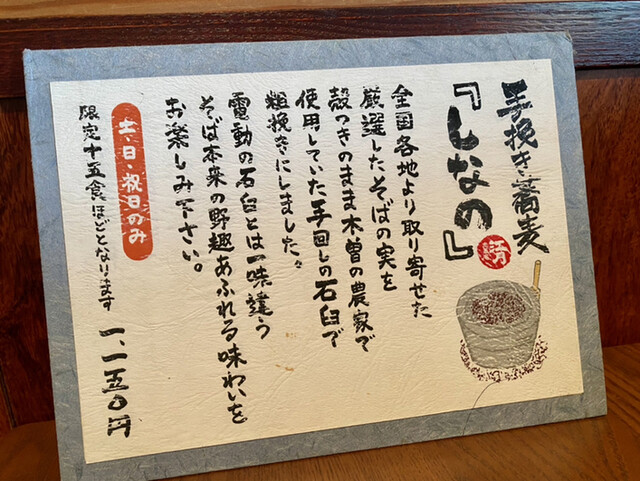 手挽き蕎麦
『しなの』
全国各地より取り寄せた
厳選したそばの実を
殻つきのまま木曽の農家で
使用していた手回しの石臼で
粗挽きにしました。
電動の石臼とは一味違う
そば本来の野趣あふれる味わいを
お楽しみ下さい。
土・日・祝日のみ
限定十五食ほどとなります
一、一五〇円